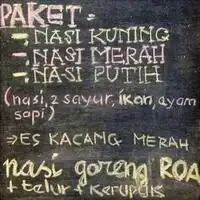 PAKET =
- NASI KUNING
- NASI MERAH
- NASI PUTIH
(nasi, 2 sayur, ikan, ayam
sapi)
⇒ ES KACANG MERAH
nasi goreng ROA
+ telur + kerupuk